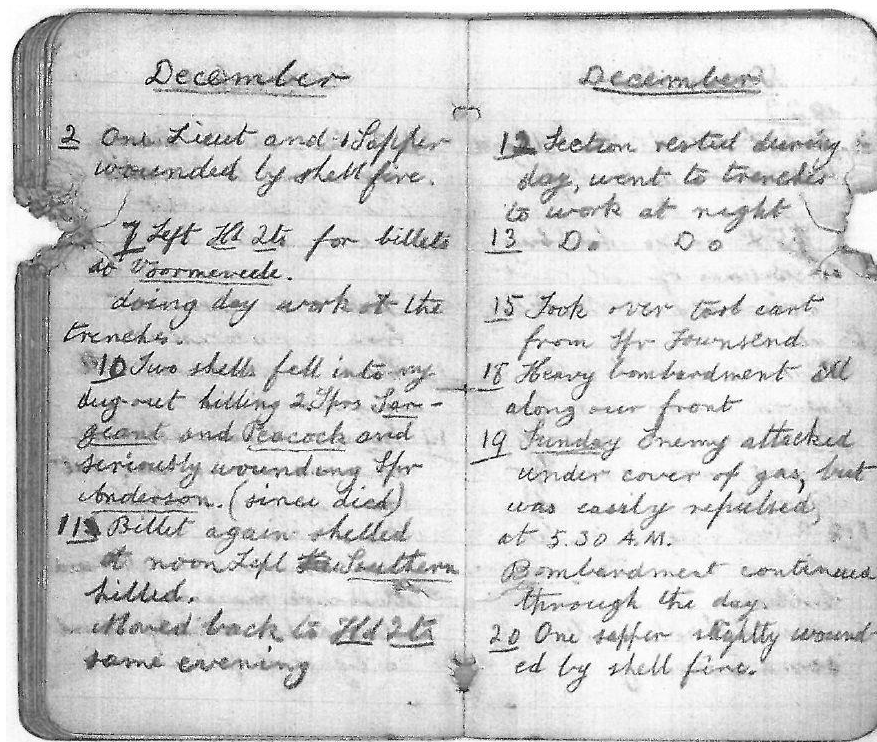 December
2 One Lieut and 1 Sapper
wounded by shell fire.
7 Left Hd Qts for billets
at Voormezeele.
doing day work at the
trenches
10 Two shells fell into my
dug-out killing 2 Sprs Sar-
geant and Peacock and
seriously wounding Spr
Anderson. (since died)
11 Billet again shelled
at noon Southern
killed.
Moved back to Hd Qts
same evening
December
12 Section rested during
day, went to trenches
to work at night
13 Do Do
15 Took over tool cart
from Spr Townsend
18 Heavy bombardment all
along our front
19 Sunday Enemy attacked
under cover of gas, but
was easily repulsed,
at 5.30 A.M.
Bombardment continued
through the day.
20 One sapper slightly wound-
ed by shell fire.